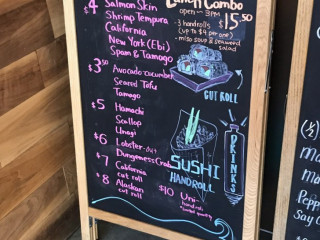 $4 Salmon Skin
Shrimp Tempura
California
New York (Ebi)
Spam & Tamago
$3.50
Avocado-cucumber
Seared Tofu
Tamago
$5 Hamachi
Scallop
Unagi
$6 Lobster
Dungeness Crab
$7 California
cut roll
$8 Alaskan
cut roll
$10 Uni
handroll
Lunch Combo
open - 3PM
$15.50
- 3 handrolls
(up to $4 per one)
- miso soup & seaweed
salad
CUT ROLL
SUSHI
HANDROLL
DRINKS
(1/2)
Mo
Pepp
Say C